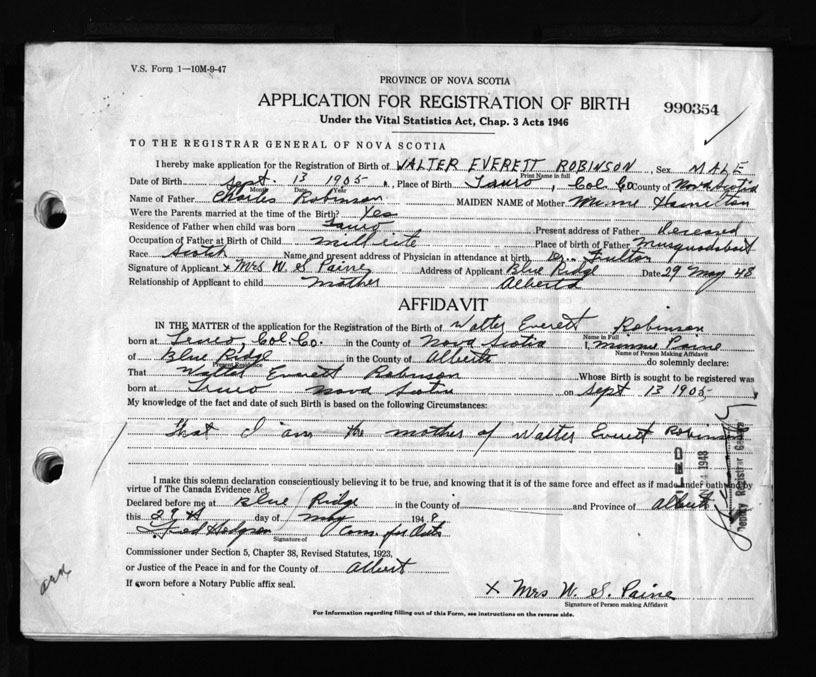 V.S. Form 1—10M-9-47
PROVINCE OF NOVA SCOTIA
APPLICATION FOR REGISTRATION OF BIRTH
990354
Under the Vital Statistics Act, Chap. 3 Acts 1946
TO THE REGISTRAR GENERAL OF NOVA SCOTIA
I hereby make application for the Registration of Birth of WALTER EVERETT ROBINSON, Sex MALE
Print Name in full
Date of Birth Sept. 13 1905, Place of Birth Truro, Col. Co County of Nova Scotia
Month Date Year
Name of Father Charles Robinson MAIDEN NAME of Mother Minnie Hamilton
Were the Parents married at the time of the Birth? Yes
Residence of Father when child was born Truro Present address of Father deceased
Occupation of Father at Birth of Child Place of birth of Father Musquodoboit
Race Scotch Name and present address of Physician in attendance at birth Dr. Fulton
Signature of Applicant x Mrs W. S. Paine Address of Applicant Blue Ridge Date 29 May 48
Relationship of Applicant to child mother Alberta
AFFIDAVIT
IN THE MATTER of the application for the Registration of Birth of Walter Everett Robinson
Name in Full
born at Truro, Col. Co. in the County of Nova Scotia I, Minnie Paine
Name of Person Making Affidavit
of Blue Ridge in the County of Alberta do solemnly declare:
Present Residence
That Walter Everett Robinson Whose Birth is sought to be registered was
born at Truro Nova Scotia on Sept 13 1905
My knowledge of the fact and date of such Birth is based on the following Circumstances:
That I am the mother of Walter Everett Robinson
I make this solemn declaration conscientiously believing it to be true, and knowing that it is of the same force and effect as if made under oath and by
virtue of The Canada Evidence Act.
Declared before me at Blue Ridge in the County of and Province of Alberta
this 29th day of May 1948
Fred Hodgson Com. for Oaths
Signature of
Commissioner under Section 5, Chapter 38, Revised Statutes, 1923,
or Justice of the Peace in and for the County of Albert
If sworn before a Notary Public affix seal.
x Mrs W. S. Paine
Signature of Person making Affidavit
For Information regarding filling out of this Form, see instructions on the reverse side.
FILED
1948
Deputy Registrar General